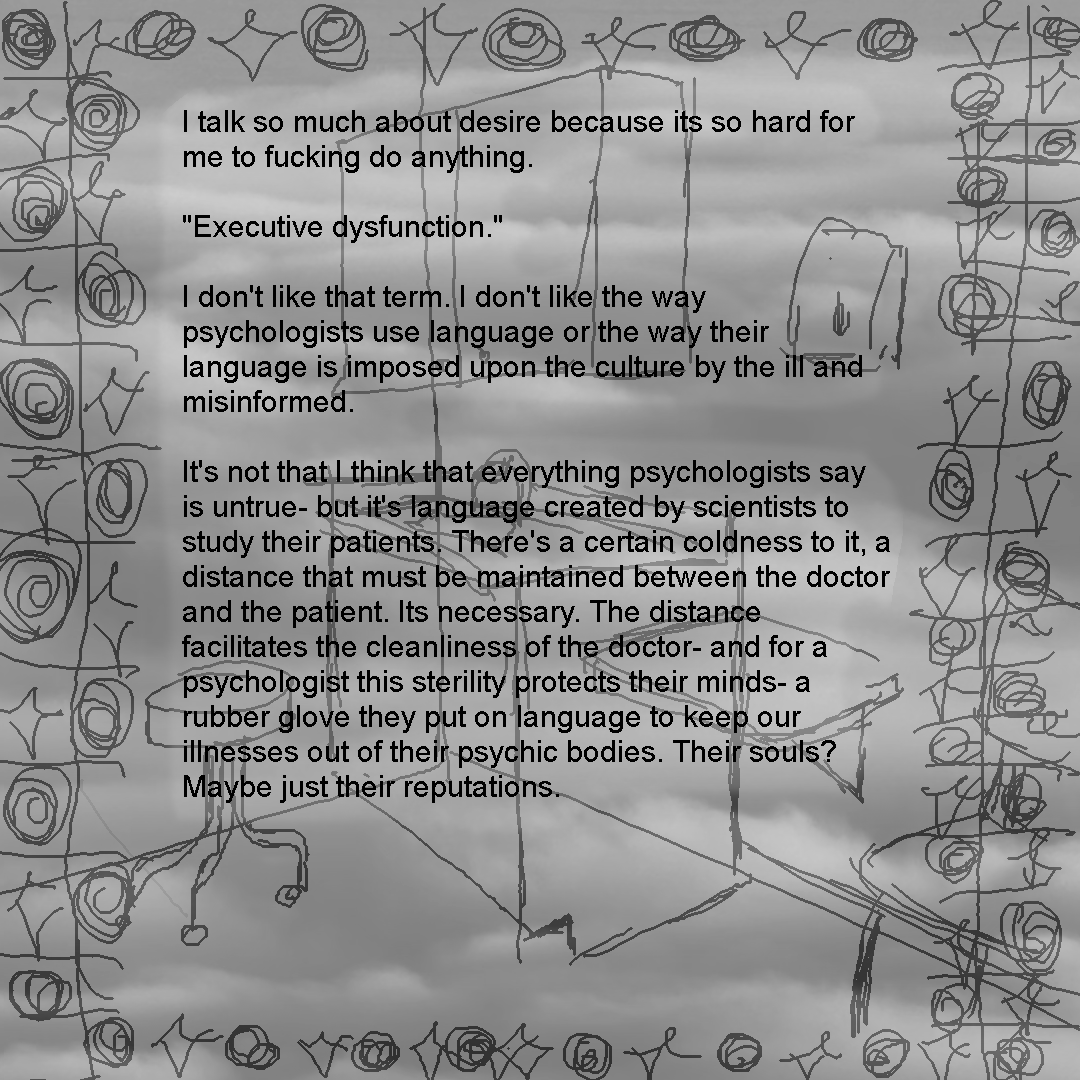 I talk so much about desire because its so hard for
me to fucking do anything.
"Executive dysfunction."
I don't like that term. I don't like the way
psychologists use language or the way their
language is imposed upon the culture by the ill and
misinformed.
It's not that I think that everything psychologists say
is untrue- but it's language created by scientists to
study their patients. There's a certain coldness to it, a
distance that must be maintained between the doctor
and the patient. Its necessary. The distance
facilitates the cleanliness of the doctor- and for a
psychologist this sterility protects their minds- a
rubber glove they put on language to keep our
illnesses out of their psychic bodies. Their souls?
Maybe just their reputations.